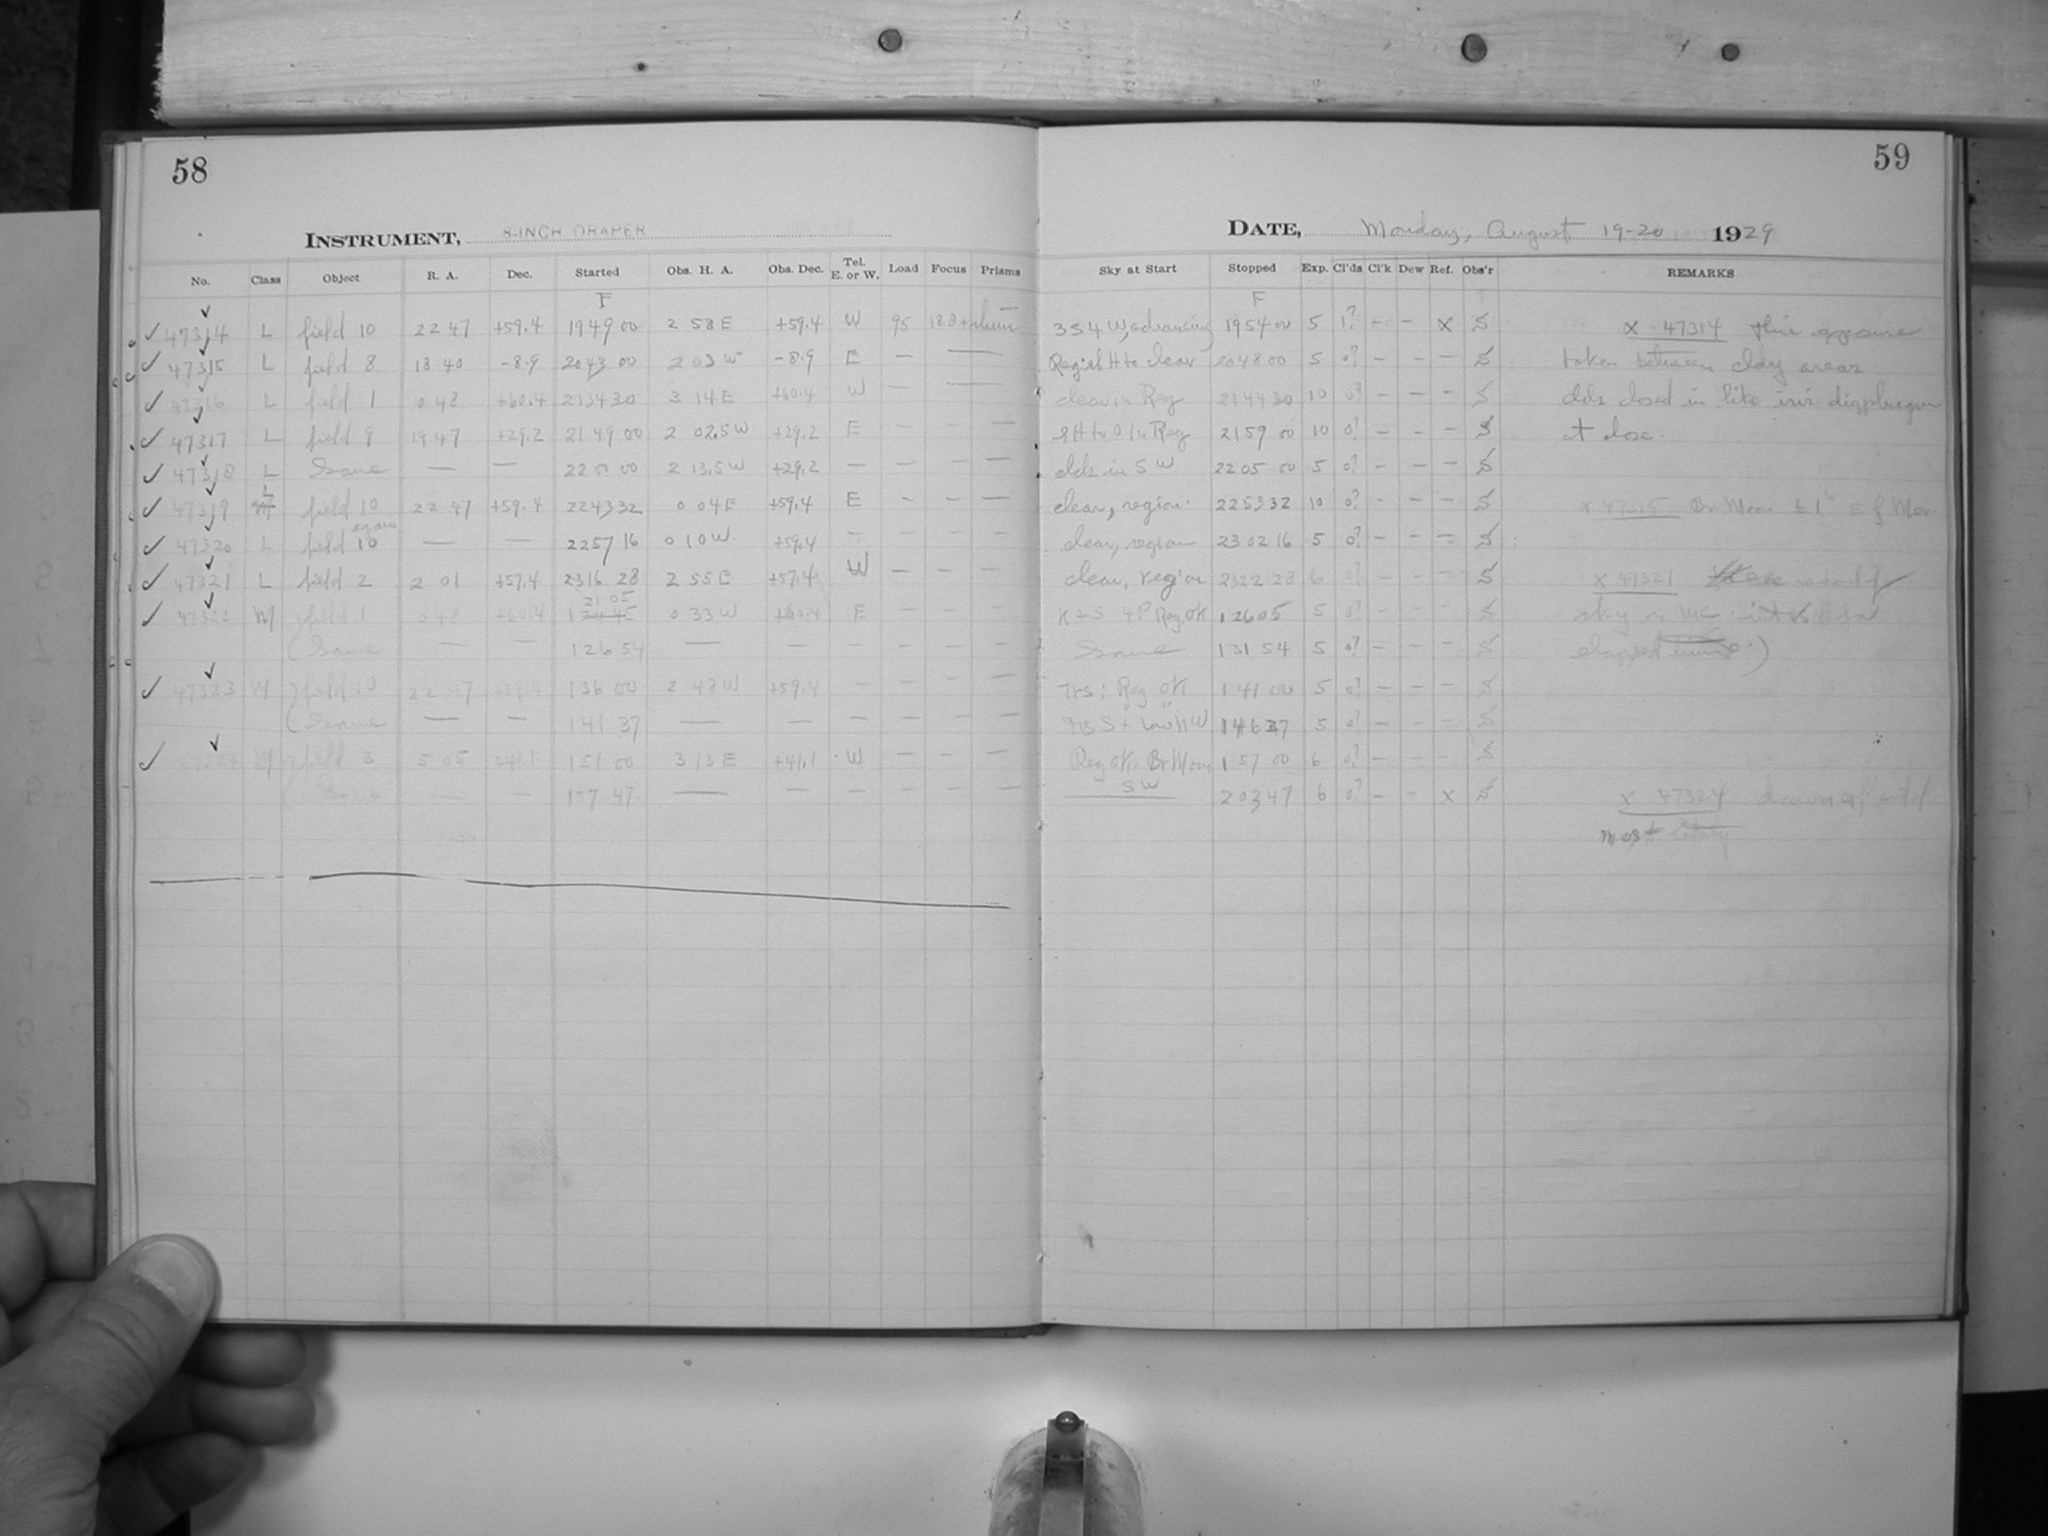 58
59
INSTRUMENT, 8-INCH DRAPER
DATE, Monday, August 19-20 1929
No. Class Object R. A. Dec. Started Obs. H. A. Obs. Dec. Tel. E. or W. Load Focus Prisms Sky at Start Stopped Exp. Cl'ds Cl'k Dew Ref. Obs'r REMARKS
F F
47314 L field 10 22 47 +59.4 1949 00 2 58 E +59.4 W 95 3 S4 W, advancing 1954 00 5 1? — — x S x 47314 this exposure
47315 L field 8 18 40 -8.9 2043 00 2 03 W -8.9 E — — to clear 2048 00 5 0? — — — S taken between cldy areas
47316 L field 1 0 48 +60.4 2134 30 3 14 E +60.4 W — — clear in Reg 2144 30 10 0? — — — S clds closed in like iris diaphragm
47317 L field 9 19 47 +29.2 2149 00 2 02.5 W +29.2 E — — — in Reg 2159 00 10 0? — — — S at close.
47318 L Same — — 220 00 2 13.5 W +29.2 — — — — clds in SW 2205 00 5 0? — — — S
47319 L field 10 22 47 +59.4 2243 32 0 04 E +59.4 E — — — clear, region 2253 32 10 0? — — — S x 47315 Br Moon ± 1 E of
47320 L field 10 again — — 2257 16 0 10 W +59.4 — — — — clear, region 2302 16 5 0? — — — S
47321 L field 2 2 01 +57.4 2316 28 2 55 E +57.4 W — — — clear, region 2322 28 6 0? — — — S x 47321
47322 M field 1 0 48 +60.4 1 21 05 0 33 W +60.4 E K + S Reg. OK 1 26 05 5 0? — — — S sky
Same — — 1 26 54 — — — — — — Same 1 31 54 5 0? — — — S
47323 M field 10 22 47 +59.4 1 36 00 2 48 W +59.4 — — — — Trs; Reg OK 1 41 00 5 0? — — — S
Same — — 1 41 37 — — — — — — trs S + low NW 1 46 37 5 0? — — — S
47324 M field 3 5 05 +41.1 1 51 00 3 13 E +41.1 W — — — Reg OK. Br Moon 1 57 00 6 0? — — — S
Same — — 1 57 47 — — — — — — SW 2 03 47 6 0? — — x S x 47324
most